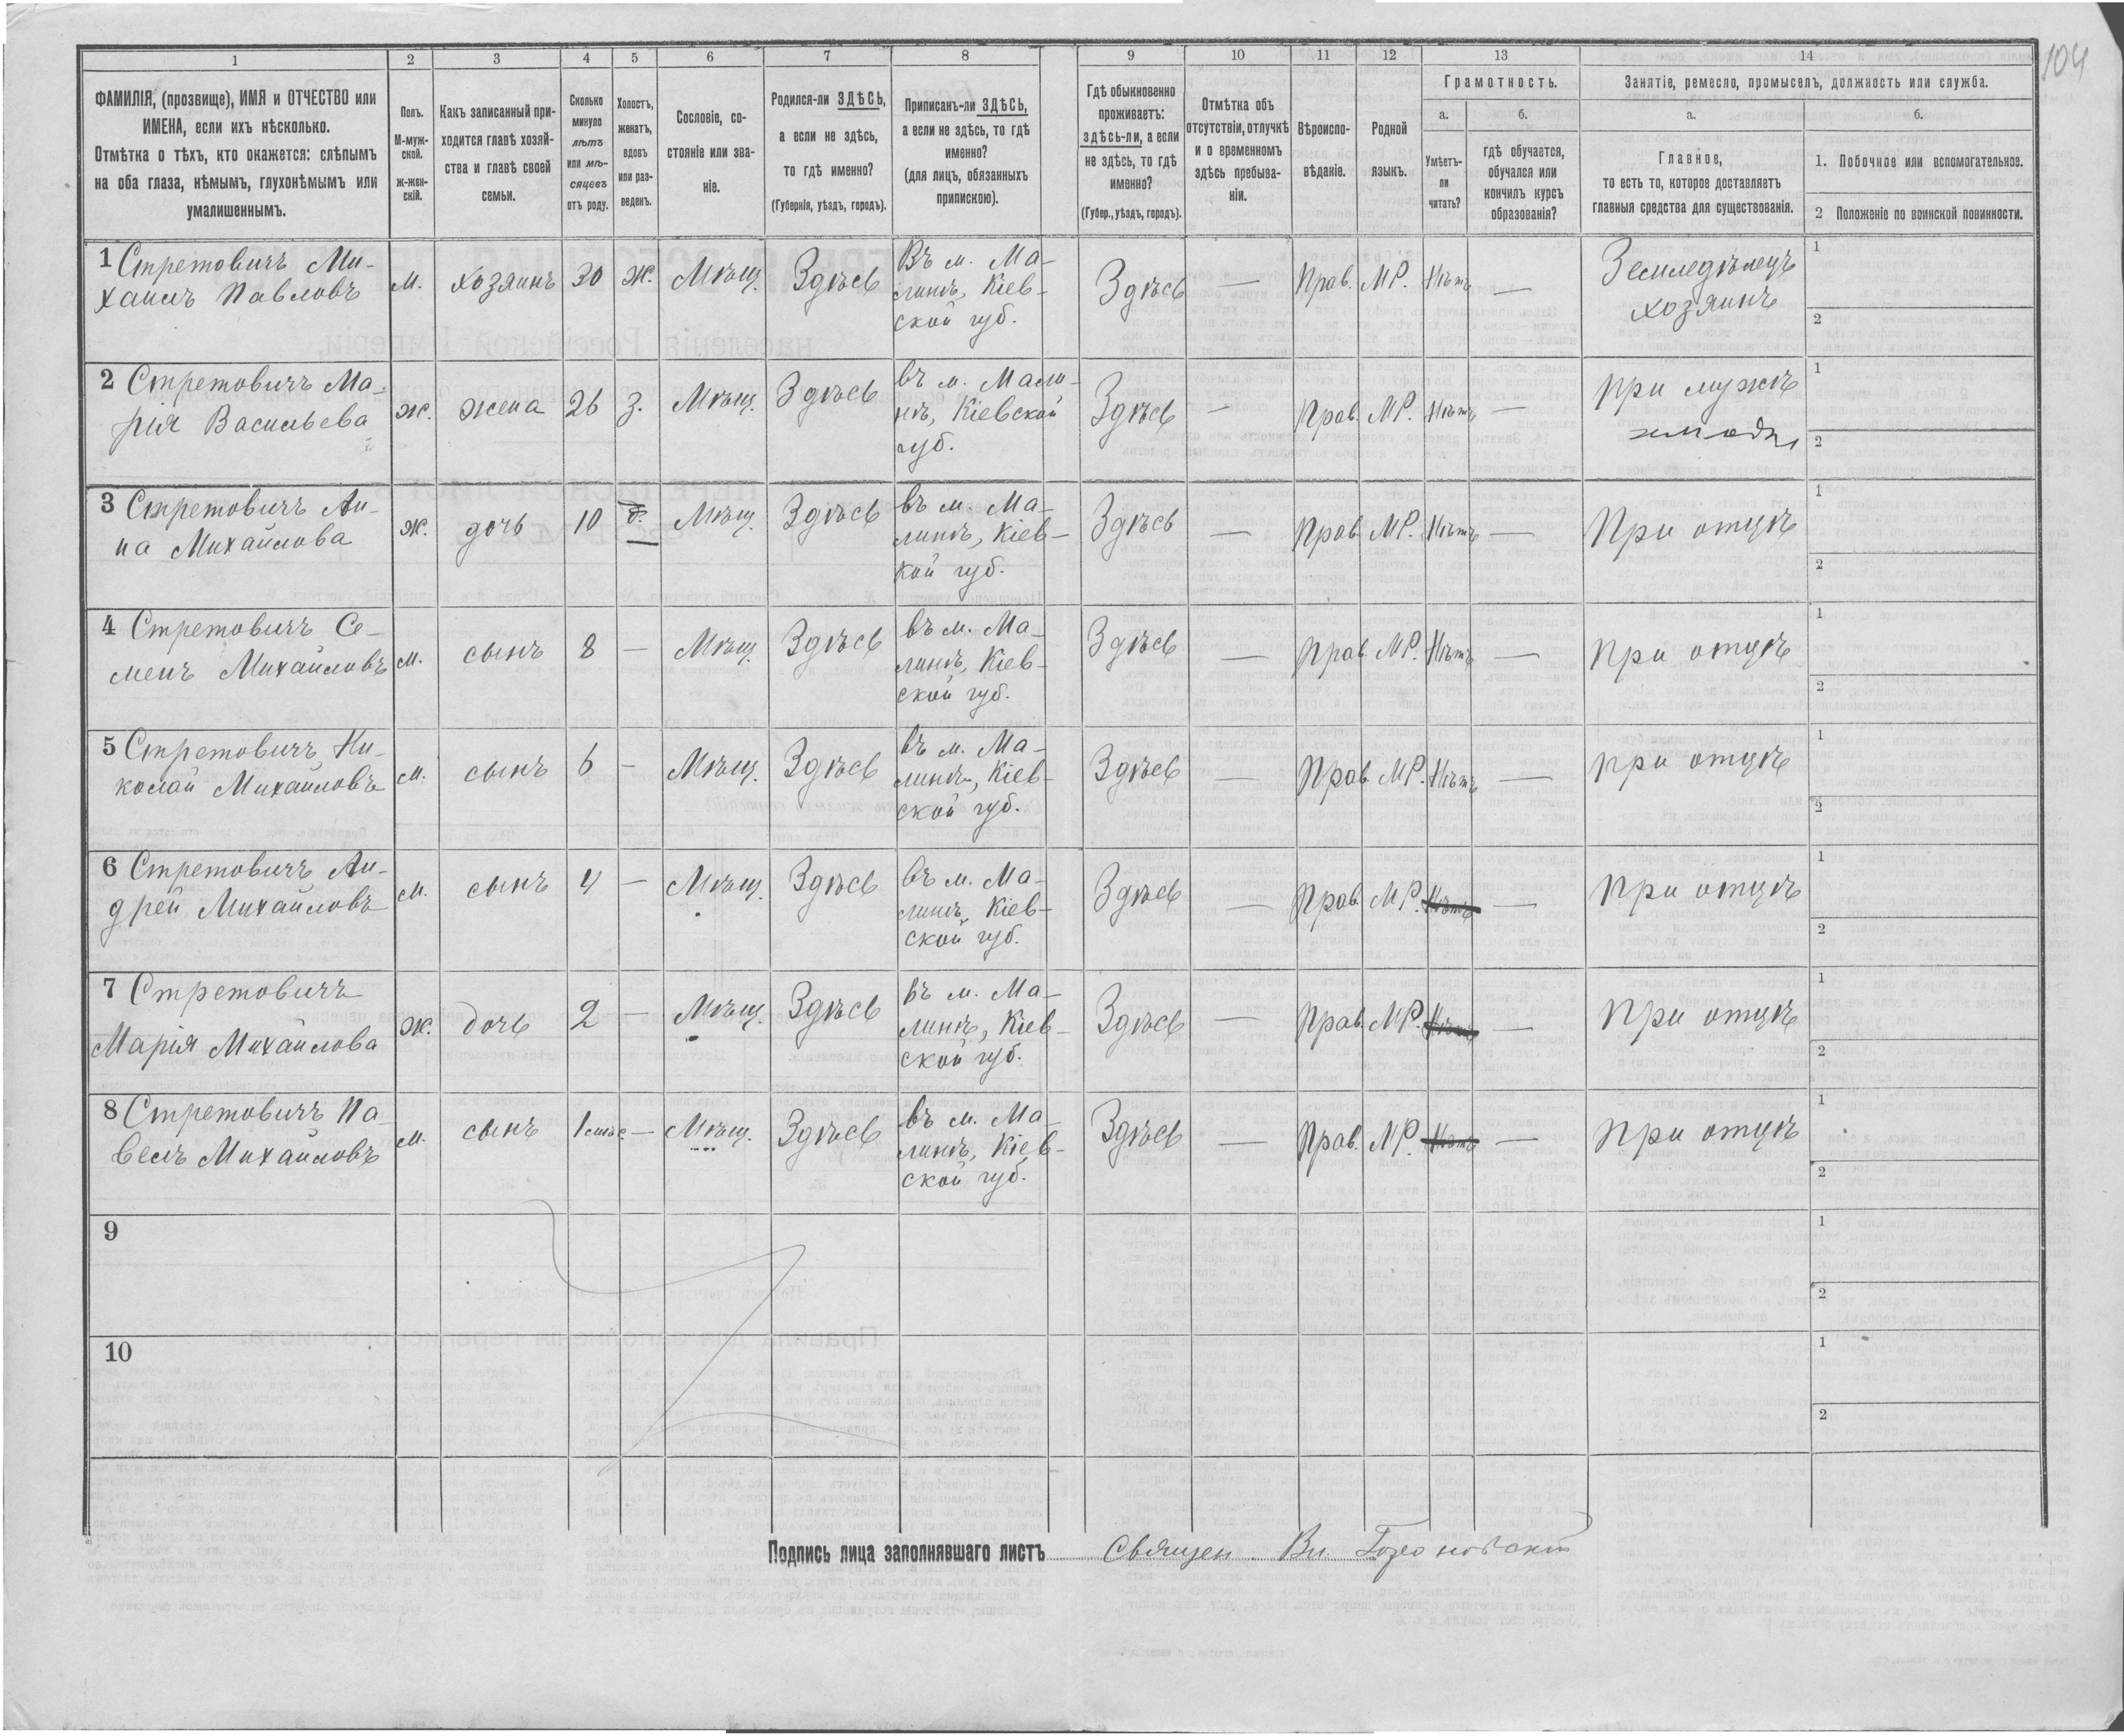 104
1 2 3 4 5 6 7 8 9 10 11 12 13 14
ФАМИЛІЯ, (прозвище), ИМЯ и ОТЧЕСТВО или
ИМЕНА, если ихъ нѣсколько.
Отмѣтка о тѣхъ, кто окажется: слѣпымъ
на оба глаза, нѣмымъ, глухонѣмымъ или
умалишеннымъ.
Полъ.
М-муж-
ской.
ж-жен-
скій.
Какъ записанный при-
ходится главѣ хозяй-
ства и главѣ своей
семьи.
Сколько
минуло
лѣтъ
или мѣ-
сяцевъ
отъ роду.
Холостъ,
женатъ,
вдовъ
или раз-
веденъ.
Сословіе, со-
стояніе или зва-
ніе.
Родился-ли ЗДѢСЬ,
а если не здѣсь,
то гдѣ именно?
(Губернія, уѣздъ, городъ).
Приписанъ-ли ЗДѢСЬ,
а если не здѣсь, то гдѣ
именно?
(для лицъ, обязанныхъ
припискою).
Гдѣ обыкновенно
проживаетъ:
здѣсь-ли, а если
не здѣсь, то гдѣ
именно?
(Губер., уѣздъ, городъ).
Отмѣтка объ
отсутствіи, отлучкѣ
и о временномъ
здѣсь пребыва-
ніи.
Вѣроиспо-
вѣданіе.
Родной
языкъ.
Грамотность.
а.
Умѣетъ-
ли
читать?
б.
гдѣ обучается,
обучался или
кончилъ курсъ
образованія?
Занятіе, ремесло, промыселъ, должность или служба.
а.
Главное,
то есть то, которое доставляетъ
главныя средства для существованія.
б.
1. Побочное или вспомогательное.
2 Положеніе по воинской повинности.
1 Стретовичъ Ми-
хаилъ Павловъ
м. хозяинъ 30 ж. Мѣщ. Здѣсь
Въ м. Ма-
линѣ, Кіев-
ской губ.
Здѣсь — Прав. МР. Нѣтъ —
Земледѣлецъ
хозяинъ
1
2
2 Стретовичъ Ма-
рія Васильева
ж. жена 26 з. Мѣщ. Здѣсь
въ м. Мали-
нѣ, Кіевской
губ.
Здѣсь — Прав. МР. Нѣтъ —
при мужѣ
1
2
3 Стретовичъ Ан-
на Михайлова
ж. дочь 10 д. Мѣщ. Здѣсь
въ м. Ма-
линѣ, Кіев-
кой губ.
Здѣсь — Прав. МР. Нѣтъ —
При отцѣ
1
2
4 Стретовичъ Се-
менъ Михайловъ
м. сынъ 8 — Мѣщ. Здѣсь
въ м. Ма-
линѣ, Кіев-
ской губ.
Здѣсь — Прав. МР. Нѣтъ —
при отцѣ
1
2
5 Стретовичъ Ни-
колай Михайловъ
м. сынъ 6 — Мѣщ. Здѣсь
въ м. Ма-
линѣ, Кіев-
ской губ.
Здѣсь — Прав. МР. Нѣтъ —
при отцѣ
1
2
6 Стретовичъ Ан-
дрей Михайловъ
м. сынъ 4 — Мѣщ. Здѣсь
въ м. Ма-
линѣ, Кіев-
ской губ.
Здѣсь — Прав. МР. Нѣтъ —
при отцѣ
1
2
7 Стретовичъ
Марія Михайлова
ж. дочь 2 — Мѣщ. Здѣсь
въ м. Ма-
линѣ, Кіев-
ской губ.
Здѣсь — Прав. МР. Нѣтъ —
при отцѣ
1
2
8 Стретовичъ Па-
велъ Михайловъ
м. сынъ 1 — Мѣщ. Здѣсь
въ м. Ма-
линѣ, Кіев-
ской губ.
Здѣсь — Прав. МР. Нѣтъ —
при отцѣ
1
2
9
1
2
10
1
2
Подпись лица заполнявшаго листъ Священ. Вл.